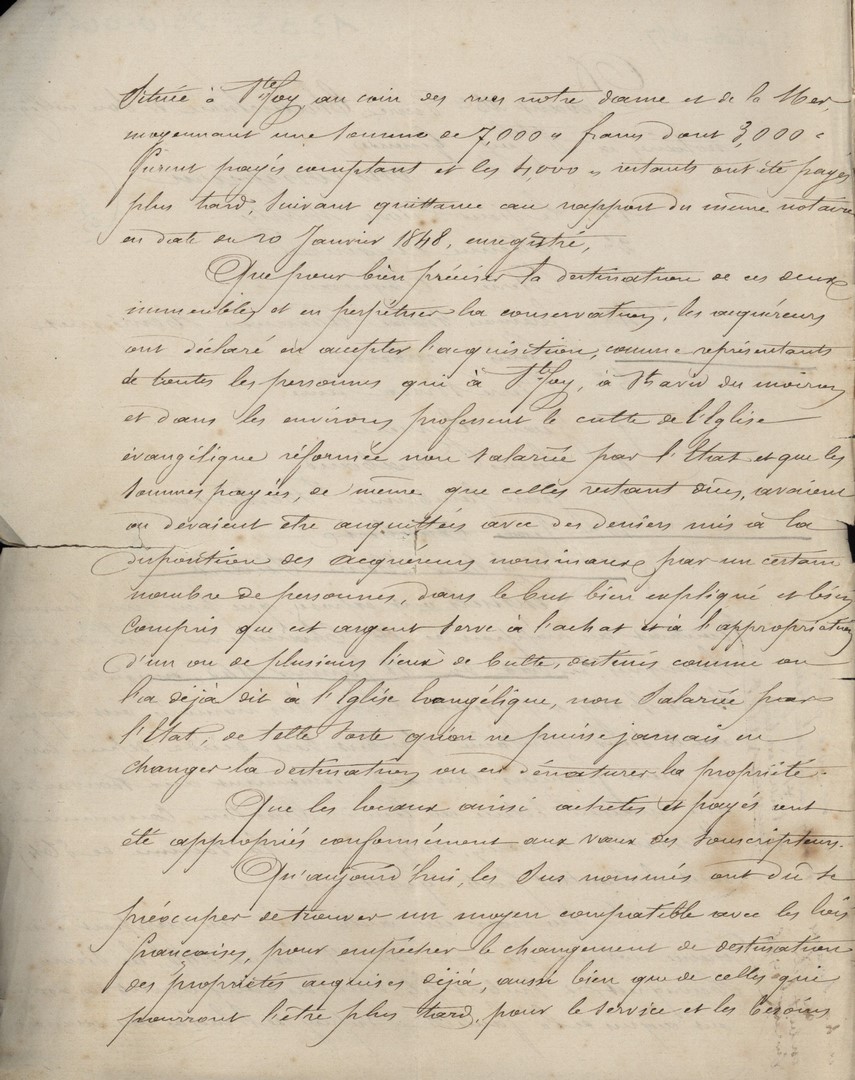 Située à Ste Foy, au coin des rues notre dame et de la Mer,
moyennant une somme de 7,000 " francs dont 3,000 "
furent payés comptant et les 4,000 " restants ont été payés
plus tard, suivant quittance au rapport du même notaire
en date du 20 Janvier 1848, enregistré,
Que pour bien préciser la destination de ces deux
immeubles et en perpétuer la conservation, les acquéreurs
ont déclaré en accepter l'acquisition, comme représentants
de toutes les personnes qui à Ste Foy, à St avit du moiron
et dans les environs professent le culte de l'Eglise
évangélique réformée non salariée par l'Etat et que les
sommes payées, de même que celles restant dûes, avaient
ou devaient être acquittées avec des deniers mis à la
disposition des acquéreurs nominaux par un certain
nombre de personnes, dans le but bien expliqué et bien
compris que cet argent serve à l'achat et à l'appropriation
d'un ou de plusieurs lieux de culte, destinés comme on
l'a déjà dit à l'Eglise Evangélique, non Salariée par
l'Etat, de telle sorte qu'on ne puisse jamais en
changer la destination ou en dénaturer la propriété.
Que les locaux ainsi achetés et payés ont
été appropriés conformément aux vœux des souscripteurs.
Qu'aujourd'hui, les sus nommés ont dû se
préoccuper de trouver un moyen compatible avec les lois
françaises, pour empêcher le changement de destination
des propriétés acquises déjà, aussi bien que de celles qui
pourront l'être plus tard, pour le service et les besoins